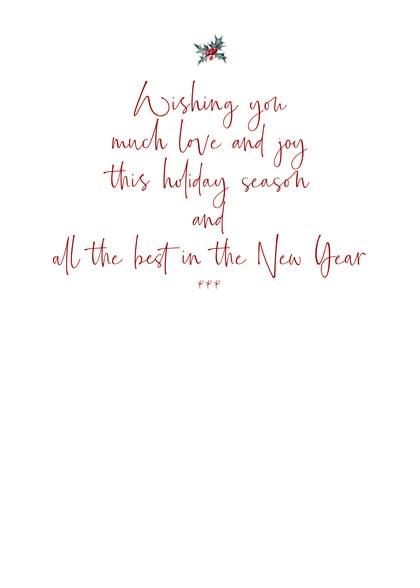 Wishing you
much love and joy
this holiday season
and
all the best in the New Year